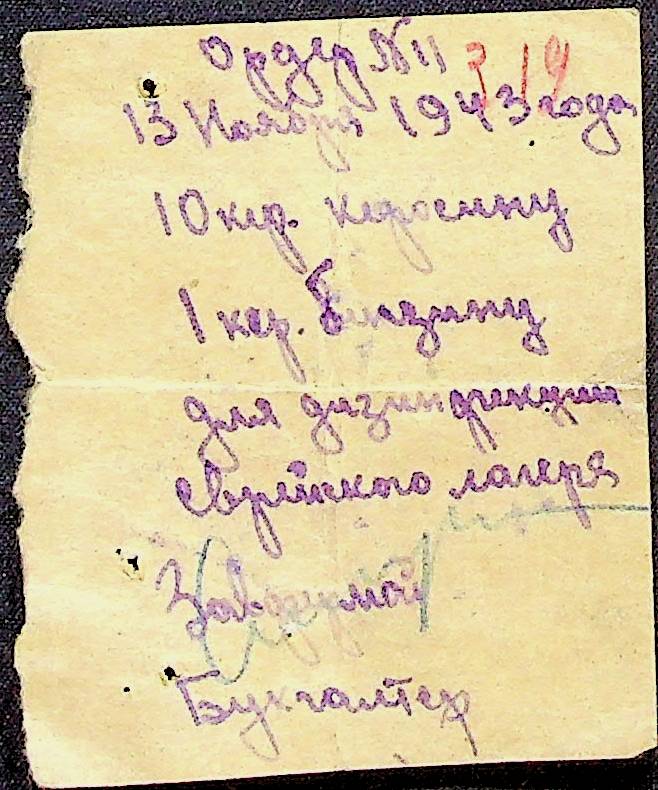 Ордер № 11 319
13 Ноября 1943 года
10 кгр. керосину
1 кгр. Бензину
для дезинфекции
еврейского лагеря
Завфермой
Бухгалтер